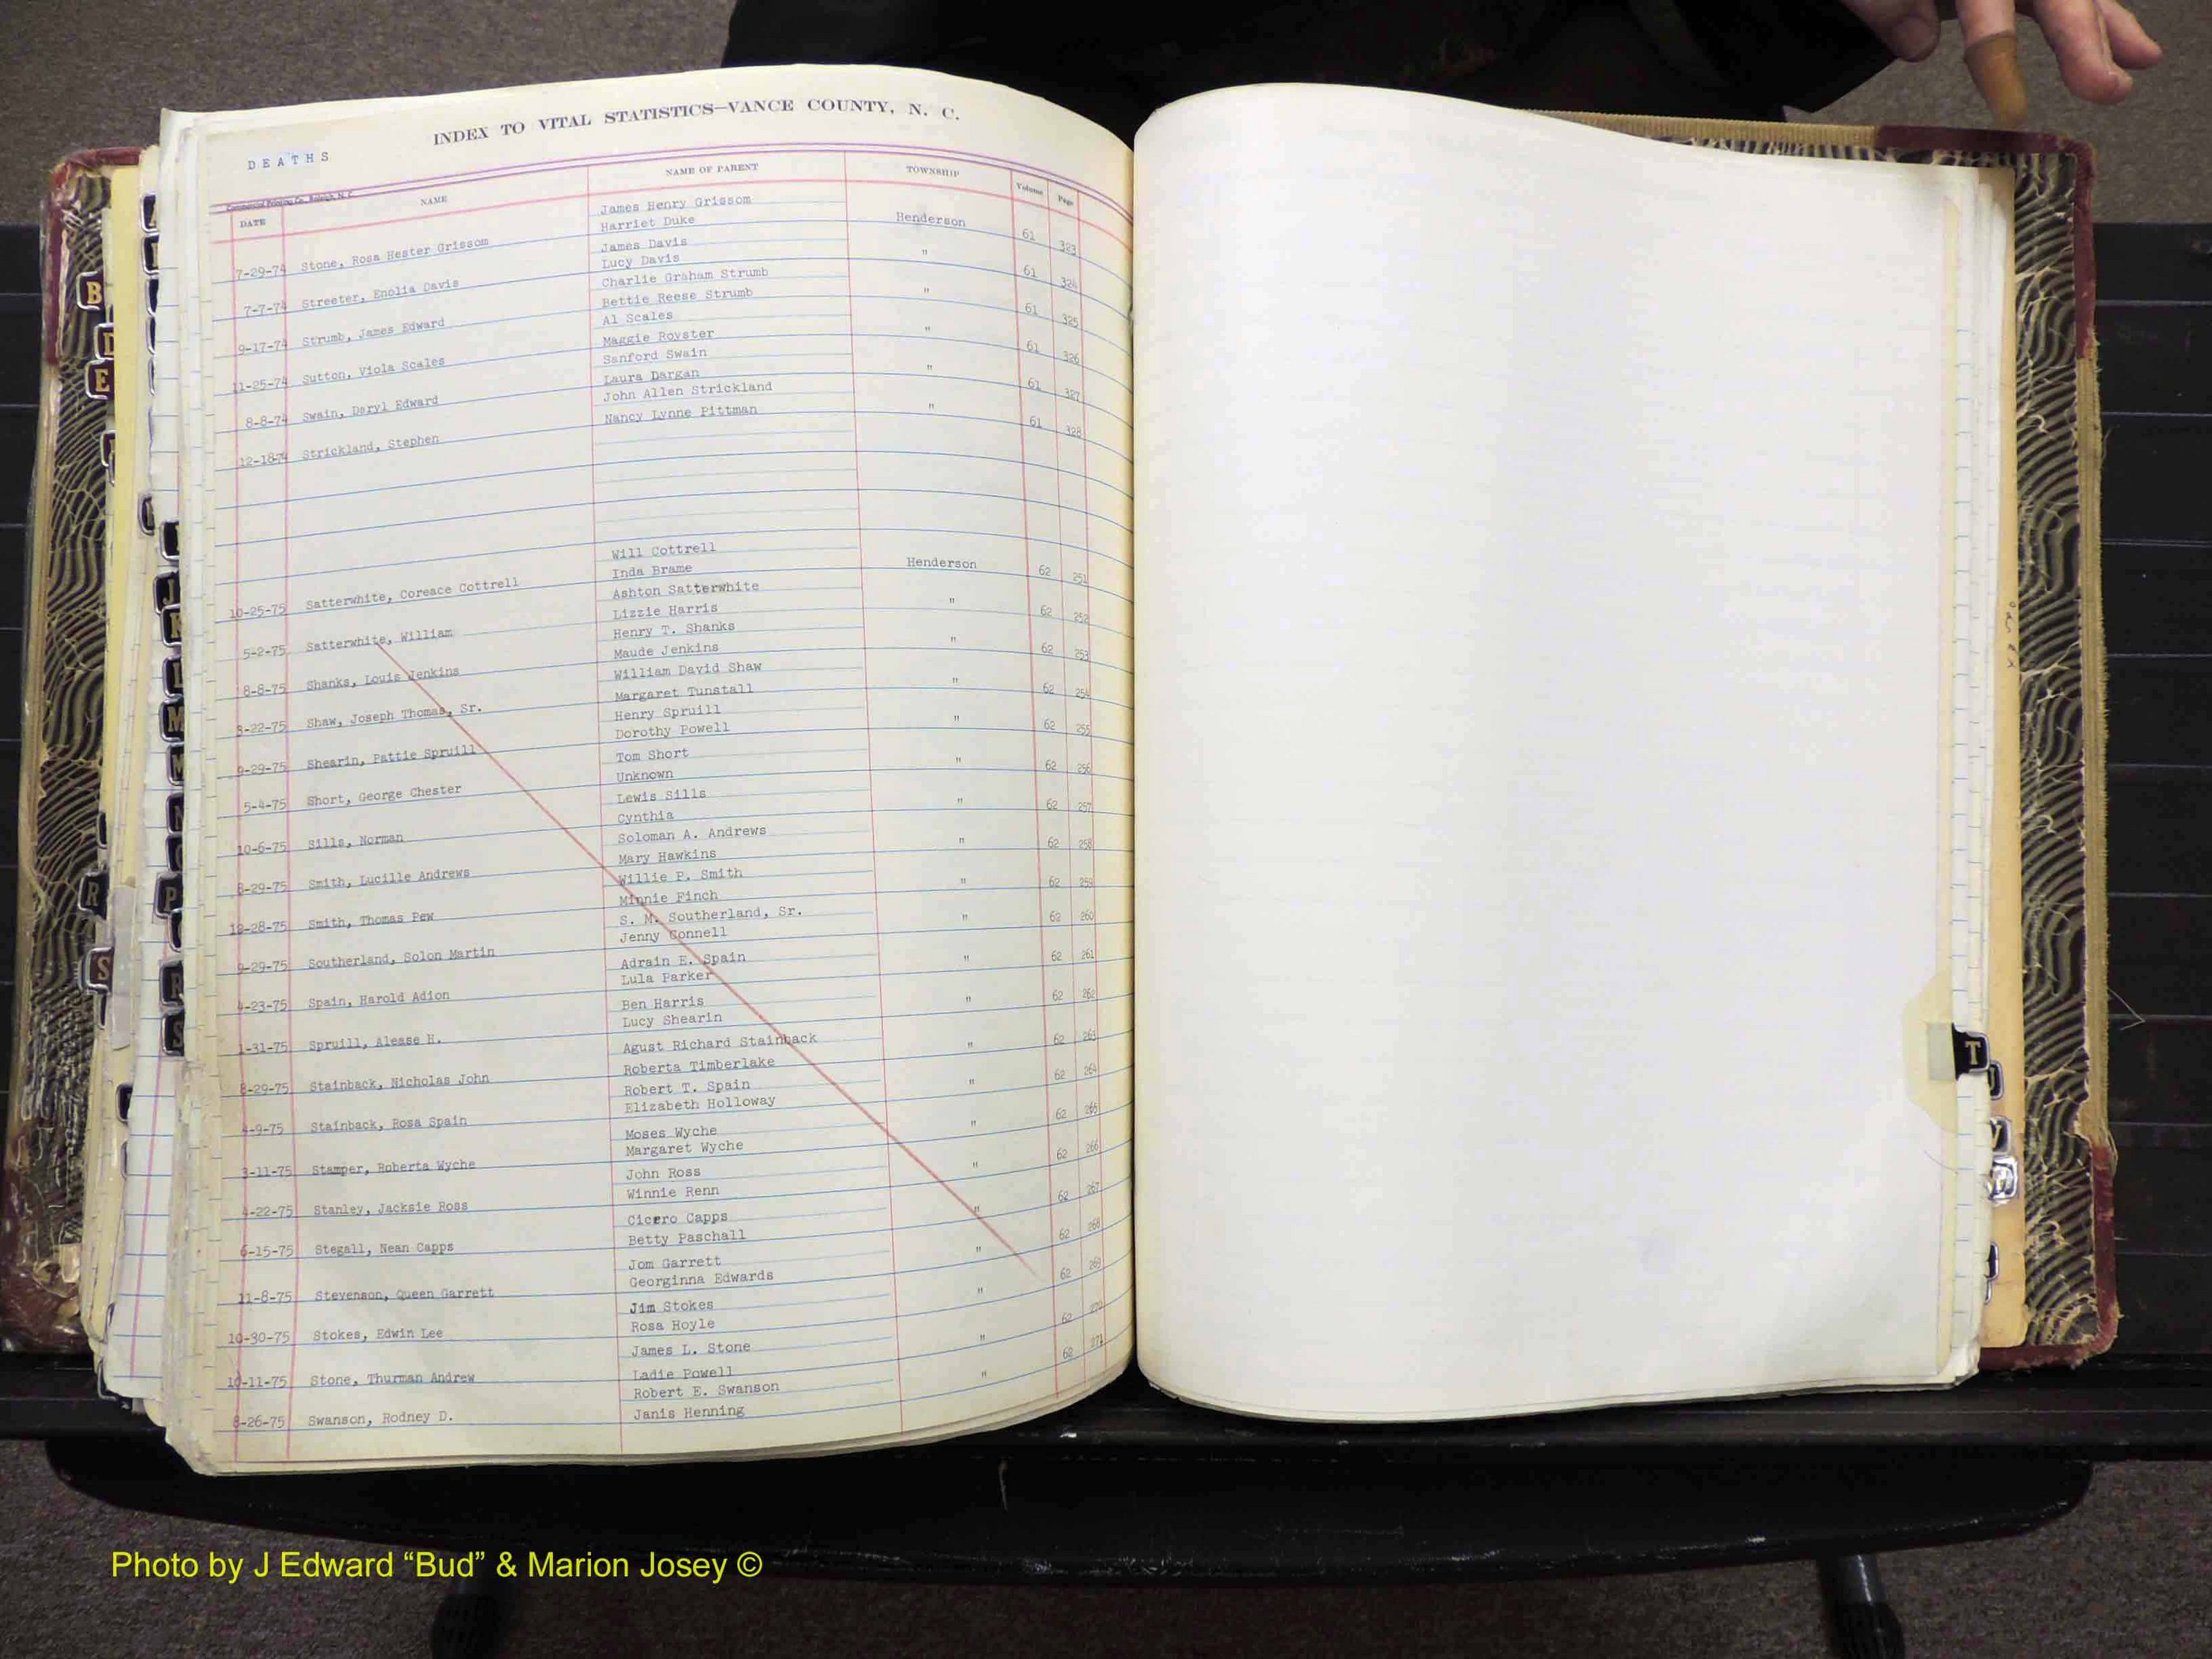 INDEX TO VITAL STATISTICS—VANCE COUNTY, N. C.
DEATHS
Commercial Printing Co., Raleigh, N. C.
DATE NAME NAME OF PARENT TOWNSHIP Volume Page
James Henry Grissom
7-29-74 Stone, Rosa Hester Grissom Harriet Duke Henderson 61 323
James Davis
7-7-74 Streeter, Enolia Davis Lucy Davis " 61 324
Charlie Graham Strumb
9-17-74 Strumb, James Edward Bettie Reese Strumb " 61 325
Al Scales
11-25-74 Sutton, Viola Scales Maggie Royster " 61 326
Sanford Swain
8-8-74 Swain, Daryl Edward Laura Dargan " 61 327
John Allen Strickland
12-18-74 Strickland, Stephen Nancy Lynne Pittman " 61 328
Will Cottrell
10-25-75 Satterwhite, Coreace Cottrell Inda Brame Henderson 62 251
Ashton Satterwhite
5-2-75 Satterwhite, William Lizzie Harris " 62 252
Henry T. Shanks
8-8-75 Shanks, Louis Jenkins Maude Jenkins " 62 253
William David Shaw
8-22-75 Shaw, Joseph Thomas, Sr. Margaret Tunstall " 62 254
Henry Spruill
9-29-75 Shearin, Pattie Spruill Dorothy Powell " 62 255
Tom Short
5-4-75 Short, George Chester Unknown " 62 256
Lewis Sills
10-6-75 Sills, Norman Cynthia " 62 257
Soloman A. Andrews
8-29-75 Smith, Lucille Andrews Mary Hawkins " 62 258
Willie P. Smith
12-28-75 Smith, Thomas Pew Minnie Finch " 62 259
S. M. Southerland, Sr.
9-29-75 Southerland, Solon Martin Jenny Connell " 62 260
Adrain E. Spain
4-23-75 Spain, Harold Adion Lula Parker " 62 261
Ben Harris
1-31-75 Spruill, Alease H. Lucy Shearin " 62 262
Agust Richard Stainback
8-29-75 Stainback, Nicholas John Roberta Timberlake " 62 263
Robert T. Spain
4-9-75 Stainback, Rosa Spain Elizabeth Holloway " 62 264
Moses Wyche
3-11-75 Stamper, Roberta Wyche Margaret Wyche " 62 265
John Ross
4-22-75 Stanley, Jacksie Ross Winnie Renn " 62 266
Cicero Capps
6-15-75 Stegall, Nean Capps Betty Paschall " 62 267
Jom Garrett
11-8-75 Stevenson, Queen Garrett Georginna Edwards " 62 268
Jim Stokes
10-30-75 Stokes, Edwin Lee Rosa Hoyle " 62 269
James L. Stone
10-11-75 Stone, Thurman Andrew Ladie Powell " 62 270
Robert E. Swanson
8-26-75 Swanson, Rodney D. Janis Henning " 62 271
B
D
E
J
K
L
M
N
R
P
S
R
S
T
Photo by J Edward “Bud” & Marion Josey ©